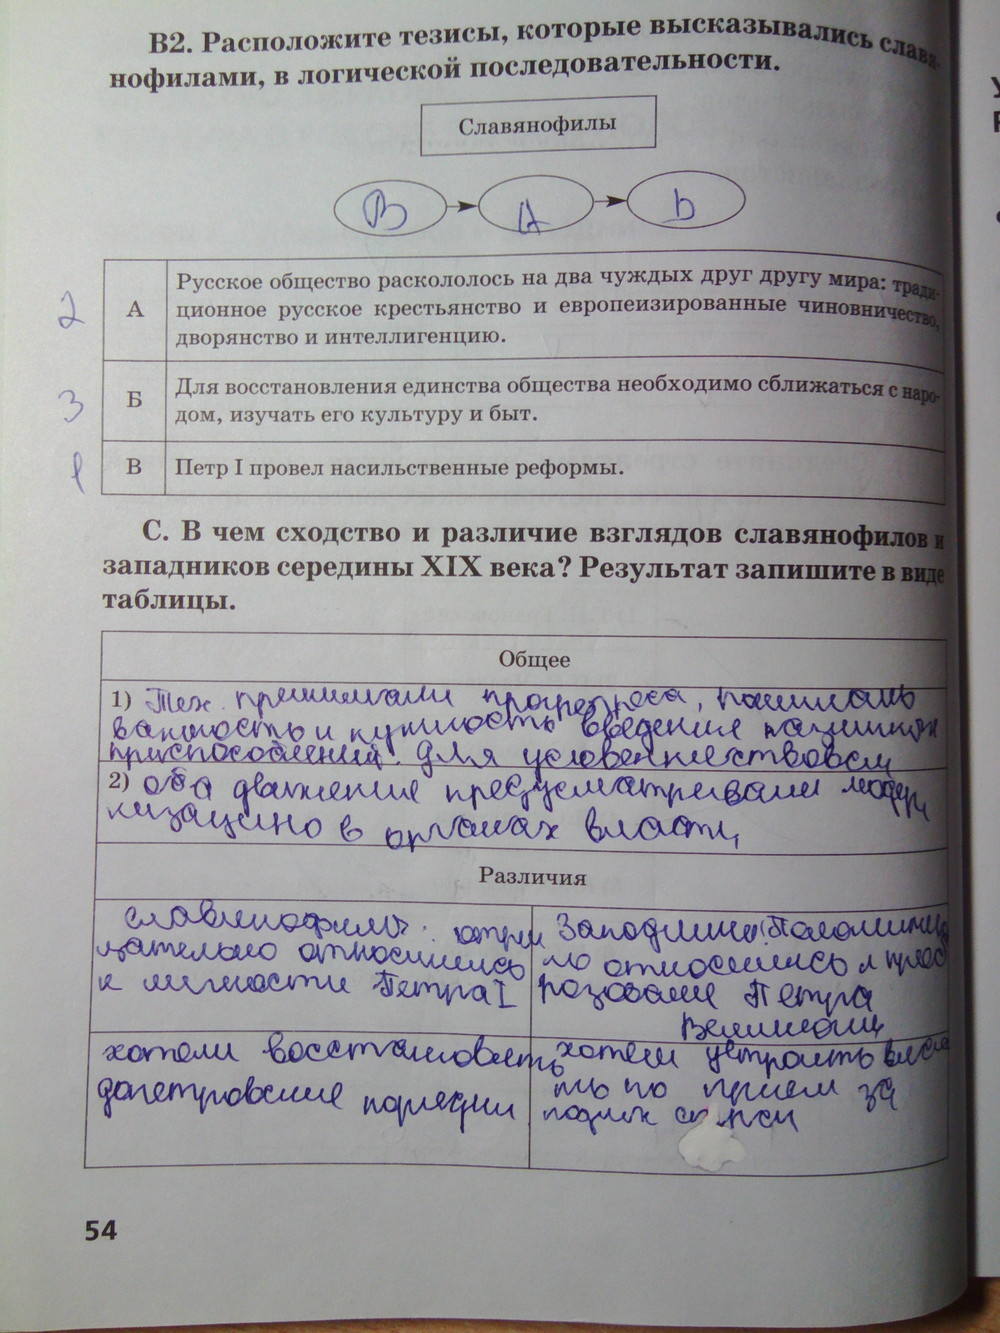 В2. Расположите тезисы, которые высказывались славя-
нофилами, в логической последовательности.
Славянофилы
В А Б
2 А Русское общество раскололось на два чуждых друг другу мира: тради-
ционное русское крестьянство и европеизированные чиновничество,
дворянство и интеллигенцию.
3 Б Для восстановления единства общества необходимо сближаться с наро-
дом, изучать его культуру и быт.
1 В Петр I провел насильственные реформы.
С. В чем сходство и различие взглядов славянофилов и
западников середины XIX века? Результат запишите в виде
таблицы.
Общее
1) принимали
важность и нужность введения
приспособлений для
2) оба движение предусматривали модер
низацию в органах власти
Различия
славянофилы отри
цательно относились
к личности Петра I
Западники:
но относились
Петра
хотели восстановить
допетровские порядки
хотели устроить
по
54